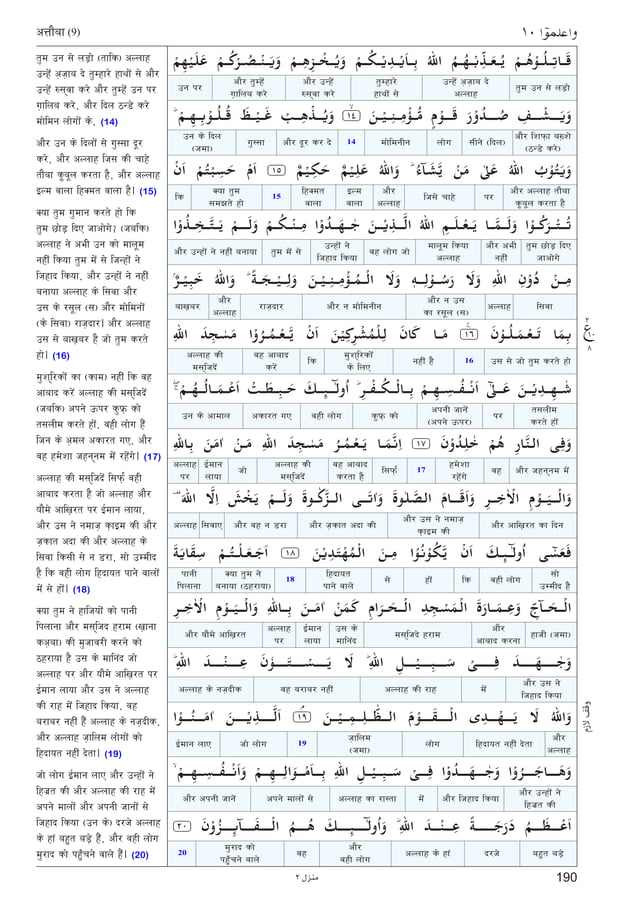 अत्तौबा (9)
واعلموٓا ١٠
तुम उन से लड़ो (ताकि) अल्लाह
उन्हें अ़ज़ाब दे तुम्हारे हाथों से और
उन्हें रुस्वा करे और तुम्हें उन पर
ग़ालिब करे, और दिल ठन्डे करे
मोमिन लोगों के, (14)
और उन के दिलों से ग़ुस्सा दूर
करे, और अल्लाह जिस की चाहे
तौबा कुबूल करता है, और अल्लाह
इल्म वाला हिक्मत वाला है। (15)
क्या तुम गुमान करते हो कि
तुम छोड़ दिए जाओगे? (जबकि)
अल्लाह ने अभी उन को मालूम
नहीं किया तुम में से जिन्हों ने
जिहाद किया, और उन्हों ने नहीं
बनाया अल्लाह के सिवा और
उस के रसूल (स) और मोमिनों
(के सिवा) राज़दार। और अल्लाह
उस से बाख़बर है जो तुम करते
हो। (16)
मुश्रिकों का (काम) नहीं कि वह
आबाद करें अल्लाह की मस्जिदें
(जबकि) अपने ऊपर कुफ़्र को
तसलीम करते हों, वही लोग हैं
जिन के अ़मल अकारत गए, और
वह हमेशा जहन्नम में रहेंगे। (17)
अल्लाह की मस्जिदें सिर्फ़ वही
आबाद करता है जो अल्लाह और
यौमे आख़िरत पर ईमान लाया,
और उस ने नमाज़ क़ाइम की और
ज़कात अदा की और अल्लाह के
सिवा किसी से न डरा, सो उम्मीद
है कि वही लोग हिदायत पाने वालों
में से हों। (18)
क्या तुम ने हाजियों को पानी
पिलाना और मस्जिद हराम (ख़ाना
कअ़बा) की मुजावरी करने को
ठहराया है उस के मानिंद जो
अल्लाह पर और यौमे आख़िरत पर
ईमान लाया और उस ने अल्लाह
की राह में जिहाद किया, वह
बराबर नहीं हैं अल्लाह के नज़दीक,
और अल्लाह ज़ालिम लोगों को
हिदायत नहीं देता। (19)
जो लोग ईमान लाए और उन्हों ने
हिज्रत की और अल्लाह की राह में
अपने मालों और अपनी जानों से
जिहाद किया (उन के) दरजे अल्लाह
के हां बहुत बड़े हैं, और वही लोग
मुराद को पहुँचने वाले हैं। (20)
قَاتِلُوْهُمْ يُعَذِّبْهُمُ اللّٰهُ بِاَيْدِيْكُمْ وَيُخْزِهِمْ وَيَنْصُرْكُمْ عَلَيْهِمْ
उन पर | और तुम्हें ग़ालिब करे | और उन्हें रुस्वा करे | तुम्हारे हाथों से | उन्हें अ़ज़ाब दे अल्लाह | तुम उन से लड़ो
وَيَشْفِ صُدُوْرَ قَوْمٍ مُّؤْمِنِيْنَ ١٤ وَيُذْهِبْ غَيْظَ قُلُوْبِهِمْ
उन के दिल (जमा) | ग़ुस्सा | और दूर कर दे | 14 | मोमिनीन | लोग | सीने (दिल) | और शिफ़ा बख़्शे (ठन्डे करे)
وَيَتُوْبُ اللّٰهُ عَلٰى مَنْ يَّشَآءُ وَاللّٰهُ عَلِيْمٌ حَكِيْمٌ ١٥ اَمْ حَسِبْتُمْ اَنْ
कि | क्या तुम समझते हो | 15 | हिक्मत वाला | इल्म वाला | और अल्लाह | जिसे चाहे | पर | और अल्लाह तौबा कुबूल करता है
تُتْرَكُوْا وَلَمَّا يَعْلَمِ اللّٰهُ الَّذِيْنَ جٰهَدُوْا مِنْكُمْ وَلَمْ يَتَّخِذُوْا
और उन्हों ने नहीं बनाया | तुम में से | उन्हों ने जिहाद किया | वह लोग जो | मालूम किया अल्लाह | और अभी नहीं | तुम छोड़ दिए जाओगे
مِنْ دُوْنِ اللّٰهِ وَلَا رَسُوْلِهٖ وَلَا الْمُؤْمِنِيْنَ وَلِيْجَةً وَاللّٰهُ خَبِيْرٌ
बाख़बर | और अल्लाह | राज़दार | और न मोमिनीन | और न उस का रसूल (स) | अल्लाह | सिवा
بِمَا تَعْمَلُوْنَ ١٦ مَا كَانَ لِلْمُشْرِكِيْنَ اَنْ يَّعْمُرُوْا مَسٰجِدَ اللّٰهِ
अल्लाह की मस्जिदें | वह आबाद करें | कि | मुश्रिकों के लिए | नहीं है | 16 | उस से जो तुम करते हो
شٰهِدِيْنَ عَلٰٓى اَنْفُسِهِمْ بِالْكُفْرِ اُولٰٓئِكَ حَبِطَتْ اَعْمَالُهُمْ
उन के आमाल | अकारत गए | वही लोग | कुफ़्र को | अपनी जानें (अपने ऊपर) | पर | तसलीम करते हों
وَفِى النَّارِ هُمْ خٰلِدُوْنَ ١٧ اِنَّمَا يَعْمُرُ مَسٰجِدَ اللّٰهِ مَنْ اٰمَنَ بِاللّٰهِ
अल्लाह पर | ईमान लाया | जो | अल्लाह की मस्जिदें | वह आबाद करता है | सिर्फ़ | 17 | हमेशा रहेंगे | वह | और जहन्नम में
وَالْيَوْمِ الْاٰخِرِ وَاَقَامَ الصَّلٰوةَ وَاٰتَى الزَّكٰوةَ وَلَمْ يَخْشَ اِلَّا اللّٰهَ
अल्लाह | सिवाए | और वह न डरा | और ज़कात अदा की | और उस ने नमाज़ क़ाइम की | और आख़िरत का दिन
فَعَسٰٓى اُولٰٓئِكَ اَنْ يَّكُوْنُوْا مِنَ الْمُهْتَدِيْنَ ١٨ اَجَعَلْتُمْ سِقَايَةَ
पानी पिलाना | क्या तुम ने बनाया (ठहराया) | 18 | हिदायत पाने वाले | से | हों | कि | वही लोग | सो उम्मीद है
الْحَآجِّ وَعِمَارَةَ الْمَسْجِدِ الْحَرَامِ كَمَنْ اٰمَنَ بِاللّٰهِ وَالْيَوْمِ الْاٰخِرِ
और यौमे आख़िरत | अल्लाह पर | ईमान लाया | उस के मानिंद | मस्जिदे हराम | और आबाद करना | हाजी (जमा)
وَجٰهَدَ فِىْ سَبِيْلِ اللّٰهِ لَا يَسْتَوٗنَ عِنْدَ اللّٰهِ
अल्लाह के नज़दीक | वह बराबर नहीं | अल्लाह की राह | में | और उस ने जिहाद किया
وَاللّٰهُ لَا يَهْدِى الْقَوْمَ الظّٰلِمِيْنَ ١٩ اَلَّذِيْنَ اٰمَنُوْا
ईमान लाए | जो लोग | 19 | ज़ालिम (जमा) | लोग | हिदायत नहीं देता | और अल्लाह
وَهَاجَرُوْا وَجٰهَدُوْا فِىْ سَبِيْلِ اللّٰهِ بِاَمْوَالِهِمْ وَاَنْفُسِهِمْ
और अपनी जानें | अपने मालों से | अल्लाह का रास्ता | में | और जिहाद किया | और उन्हों ने हिज्रत की
اَعْظَمُ دَرَجَةً عِنْدَ اللّٰهِ وَاُولٰٓئِكَ هُمُ الْفَآئِزُوْنَ ٢٠
20 | मुराद को पहुँचने वाले | वह | और वही लोग | अल्लाह के हां | दरजे | बहुत बड़े
وقف لازم
منزل ٢
190